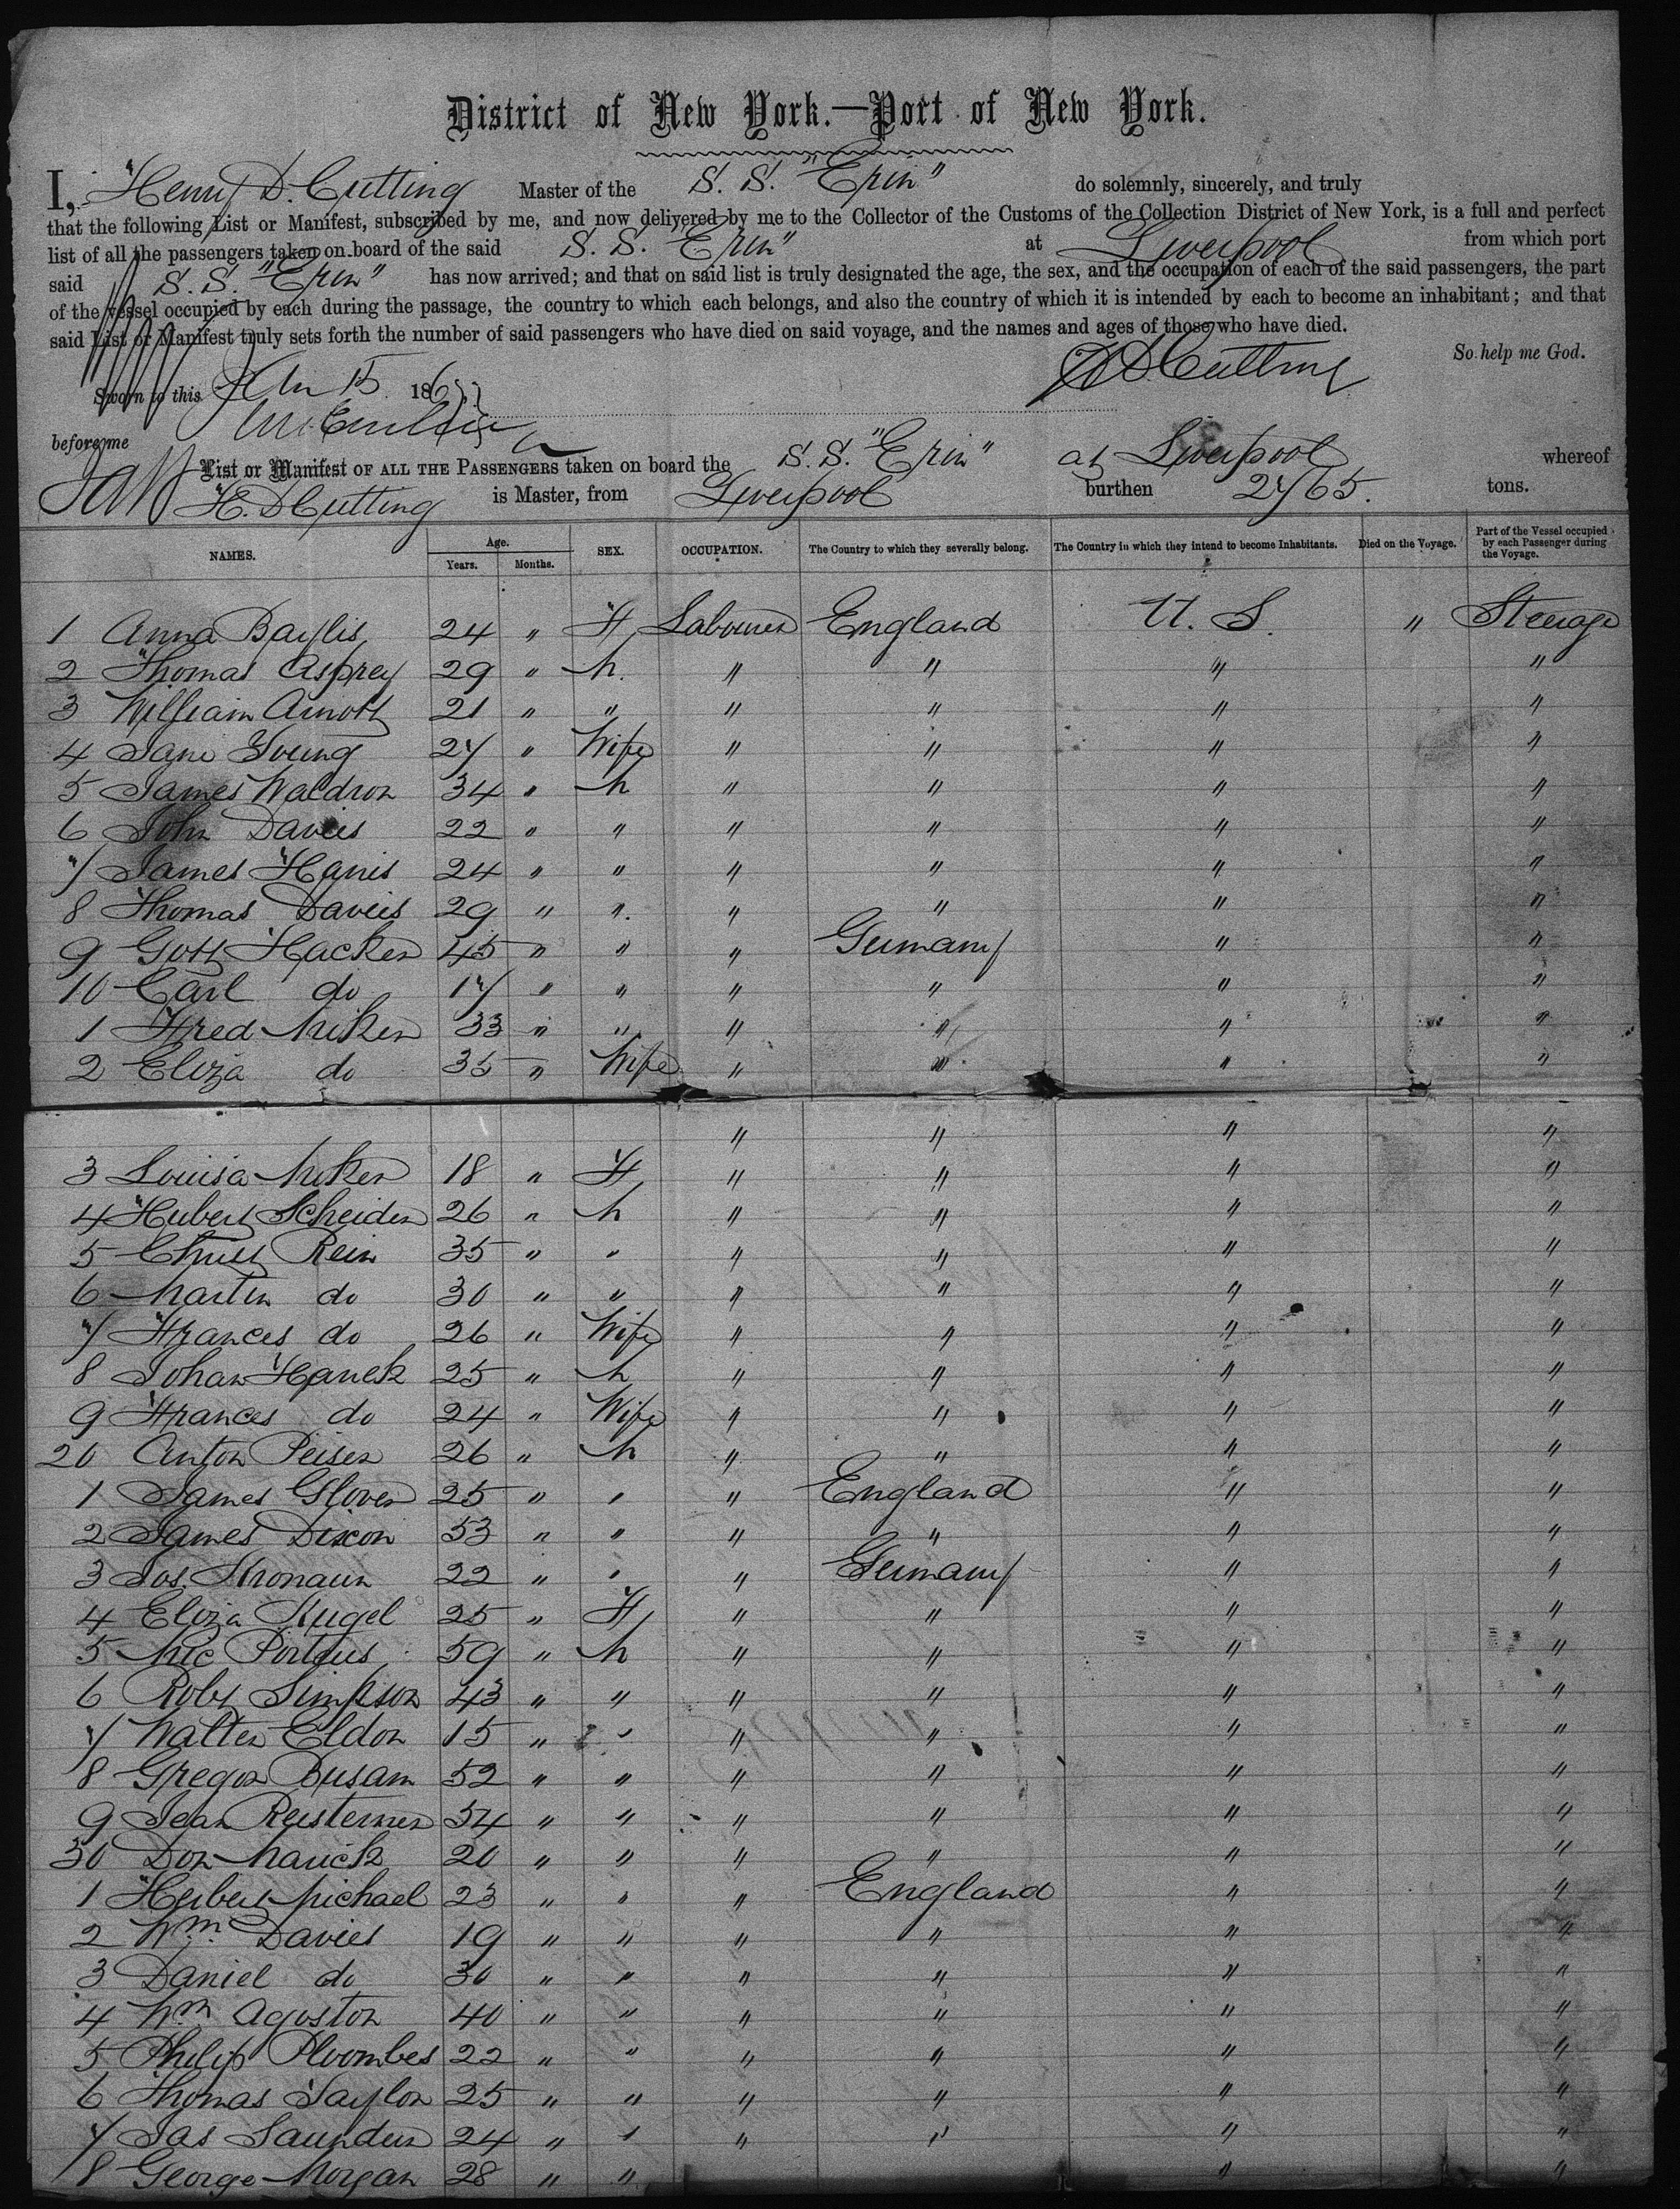 District of New York.—Port of New York.
I, Henry D. Cutting Master of the S. S. "Erin" do solemnly, sincerely, and truly
that the following List or Manifest, subscribed by me, and now delivered by me to the Collector of the Customs of the Collection District of New York, is a full and perfect
list of all the passengers taken on board of the said S. S. "Erin" at Liverpool from which port
said S. S. "Erin" has now arrived; and that on said list is truly designated the age, the sex, and the occupation of each of the said passengers, the part
of the vessel occupied by each during the passage, the country to which each belongs, and also the country of which it is intended by each to become an inhabitant; and that
said List or Manifest truly sets forth the number of said passengers who have died on said voyage, and the names and ages of those who have died.
So help me God.
H D Cutting
Sworn to this Jan 15 186
before me
List or Manifest OF ALL THE PASSENGERS taken on board the S. S. "Erin" at Liverpool whereof
H. D Cutting is Master, from Liverpool burthen 2765. tons.
NAMES. Age. Years. Months. SEX. OCCUPATION. The Country to which they severally belong. The Country in which they intend to become Inhabitants. Died on the Voyage. Part of the Vessel occupied by each Passenger during the Voyage.
1 Anna Baylis 24 " F Labourer England U. S. " Steerage
2 Thomas Asprey 29 " M. " " " "
3 William Arnott 21 " " " " " "
4 Jane Young 27 " Wife " " " "
5 James Waldron 34 " M " " " "
6 John Davies 22 " " " " " "
7 James Harris 24 " " " " " "
8 Thomas Davies 29 " ". " " " "
9 Gott Hacker 45 " " " Germany " "
10 Carl do 17 " " " " " "
1 Fred Meker 33 " " " " " "
2 Eliza do 35 " Wife " " " "
" " " "
3 Louisa Meker 18 " F " " " "
4 Hubert Scheider 26 " M " " " "
5 Christ Rein 35 " " " " " "
6 Martin do 30 " " " " " "
7 Frances do 26 " Wife " " " "
8 Johan Hanek 25 " M " " " "
9 Frances do 24 " Wife " " " "
20 Anton Peiser 26 " M " " " "
1 James Glover 25 " " " England " "
2 James Dixon 53 " " " " " "
3 Jos. Stronaun 22 " " " Germany " "
4 Eliza Kugel 25 " F " " " "
5 Mic Portius 59 " M " " " "
6 Robt Simpson 43 " " " " " "
7 Walter Eldon 15 " " " " " "
8 Gregor Busam 52 " " " " " "
9 Jean Reisterner 54 " " " " " "
30 Don Marick 20 " " " " " "
1 Herbert Michael 23 " " " England " "
2 Wm. Davies 19 " " " " " "
3 Daniel do 30 " " " " " "
4 Wm Agoston 40 " " " " " "
5 Philip Ploombes 22 " " " " " "
6 Thomas Taylor 25 " " " " " "
7 Jas Saunders 24 " " " " " "
8 George Morgan 28 " " " "